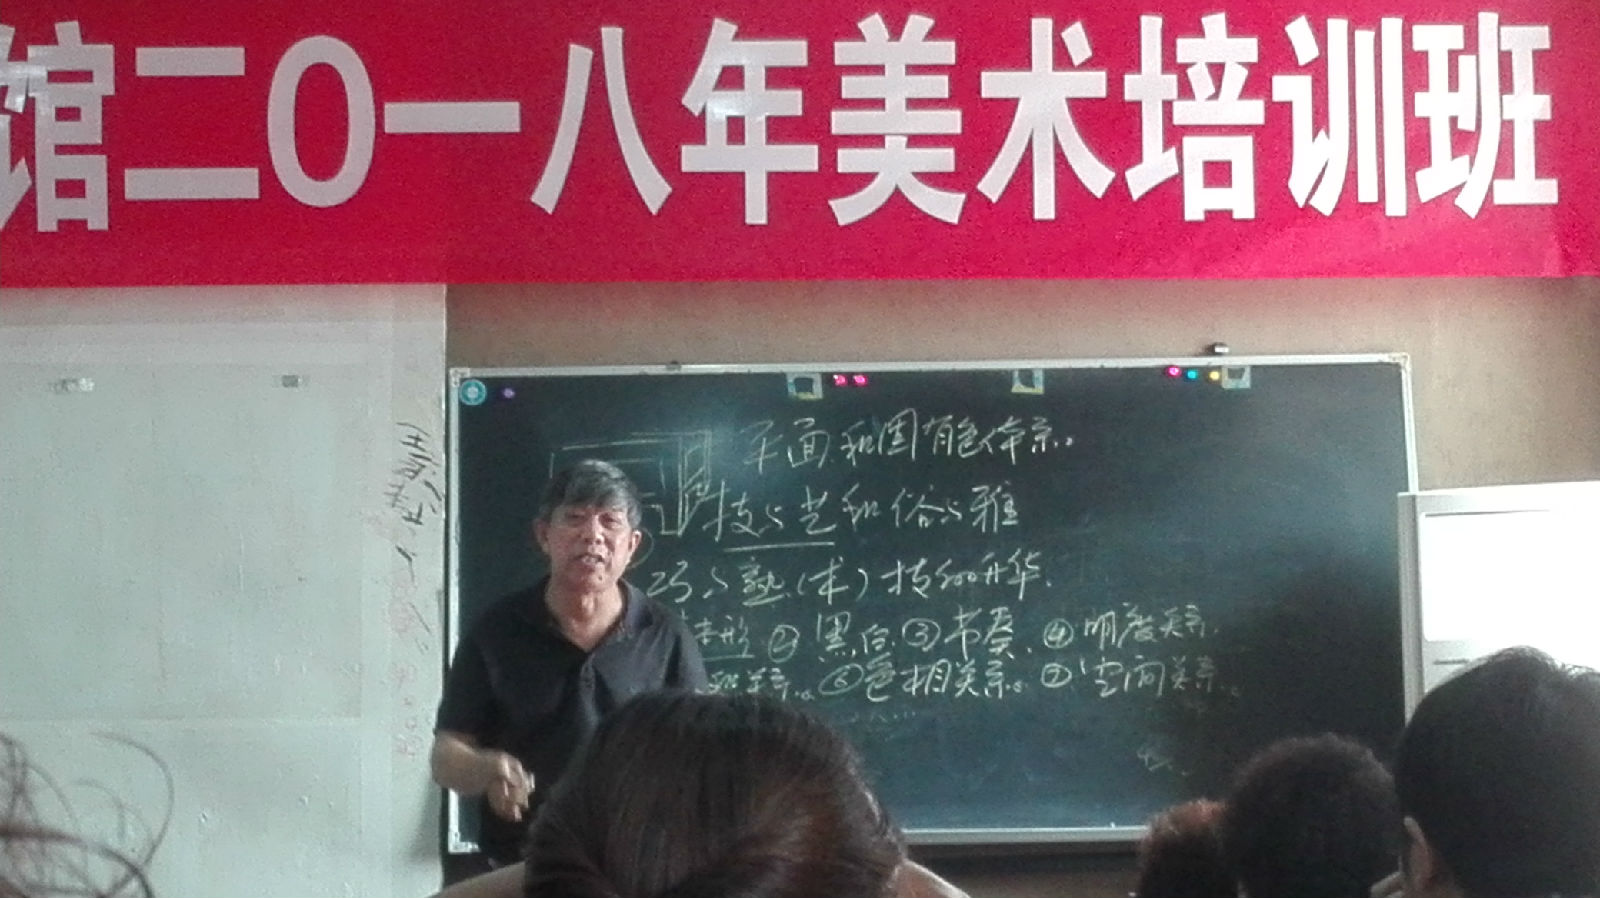 馆二〇一八年美术培训班
平面和固有色体系。
技与艺和俗与雅
巧与熟(术)技的升华.
形②黑白③节奏.④明度关系.
关系。⑥色相关系。⑦空间关系。